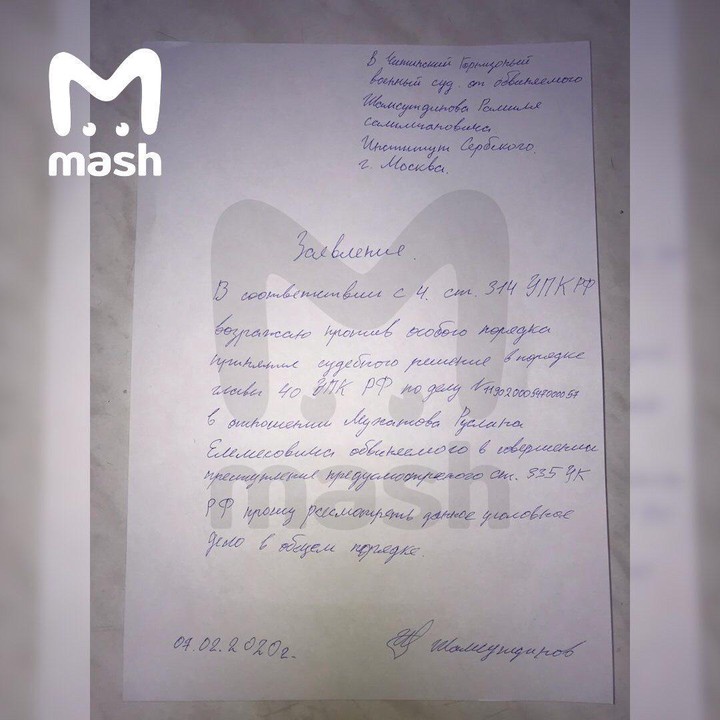 mash
В Читинский Гарнизонный
военный суд от обвиняемого
Шамсутдинова Рамиля
Салимжановича
Институт Сербского.
г. Москва.
Заявление.
В соответствии с ч. ст. 314 УПК РФ
возражаю против особого порядка
принятия судебного решение в порядке
главы 40 УПК РФ по делу №
в отношении Мужатова Руслана
обвиняемого в совершении
преступления предусмотреного ст. 335 УК
РФ прошу рассмотреть данное уголовное
дело в общем порядке.
mash
07.02.2020г.
Шамсутдинов